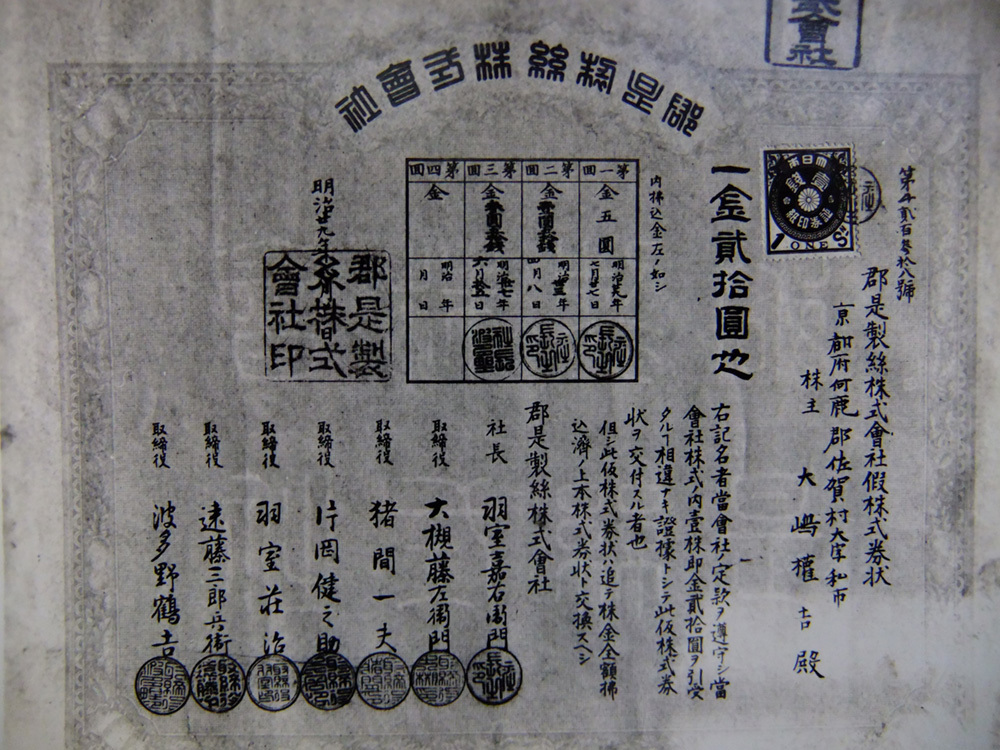 郡是製絲株式會社
第千貳百參拾八號
郡是製絲株式會社假株式券状
京都府何鹿郡佐賀村大字私市
株主 大嶋權吉殿
大日本
壹錢
證券印紙
1 ONE Sⁿ
一金貳拾圓也
内拂込金左ノ如シ
第一回 金五圓 明治廿九年七月廿七日
第二回 金 明治 年四月八日
第三回 金 明治 七年六月 日
第四回 金 明治 年 月 日
右記名者當會社ノ定款ヲ遵守シ當
會社株式ノ内壹株即金貳拾圓ヲ引受
タルヿ相違ナキ證據トシテ此仮株式券
状ヲ交付スル者也
但シ此仮株式券状ハ追テ株金全額拂
込濟ノ上本株式券状ト交換スヘシ
明治廿九年 月 日
郡是製
絲株式
會社印
郡是製絲株式會社
社長 羽室嘉右衞門
取締役 大槻藤左衞門
取締役 猪間一夫
取締役 片岡健之助
取締役 羽室荘治
取締役 遠藤三郎兵衞
取締役 波多野鶴吉
會社